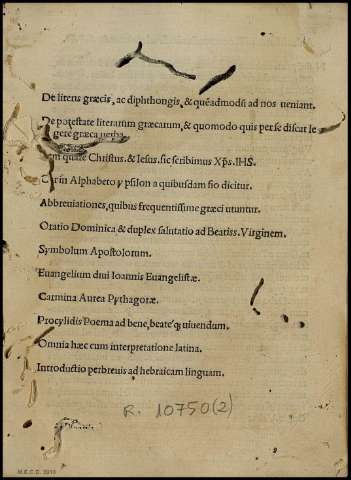 De literis græcis, ac diphthongis, & quēadmodū ad nos ueniant.
De potestate literarum græcarum, & quomodo quis per se discat le
gere græca uerba.
quare Christus. & Iesus. sic scribimus Xp̄s. IHS.
in Alphabeto y psilon a quibusdam fio dicitur.
Abbreuiationes, quibus frequentissime græci utuntur.
Oratio Dominica & duplex salutatio ad Beatiss. Virginem.
Symbolum Apostolorum.
Euangelium diui Ioannis Euangelistæ.
Carmina Aurea Pythagoræ.
Phocylidis Poema ad bene, beateq; uiuendum.
Omnia hæc cum interpretatione latina.
Introductio perbreuis ad hebraicam linguam.
R. 10750(2)